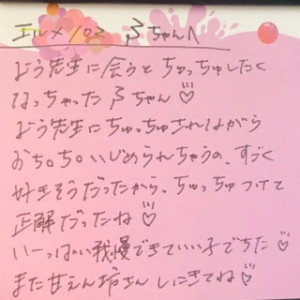 エルメ103 うちゃんへ
よう先生に会うとちゅっちゅしたく
なっちゃったうちゃん♡
よう先生にちゅっちゅされながら
おち〇ち〇いじめられちゃうの、すごく
好きそうだったから、ちゅっちゅつけて
正解だったね♡
いーっぱい我慢できていい子でちた♡
また甘えん坊さんしにきてね♡